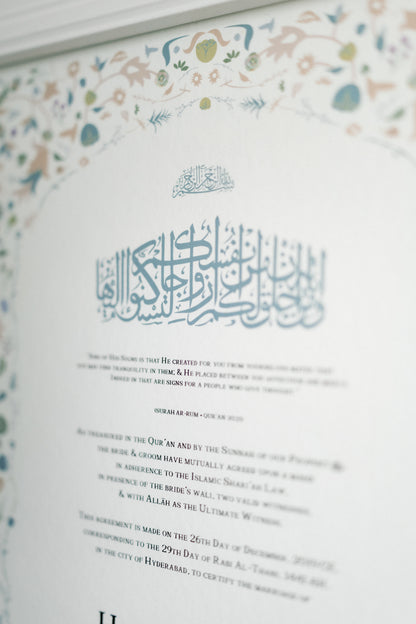 بسم الله الرحمن الرحيم
ومن ءايته أن خلق لكم من أنفسكم أزواجا لتسكنوا إليها
"Among of His Signs is that He created for you from yourselves mates, that
you may find tranquility in them; & He placed between you affection and mercy.
Indeed in that are signs for a people who give thought"
(Surah Ar-Rum • Qur'an 30:21)
As treasured in the Qur'an and by the Sunnah of our Prophet ﷺ
the bride & groom have mutually agreed upon a mahr
in adherence to the Islamic Shari'ah Law,
in presence of the bride's wali, two valid witnesses,
& with Allāh as the Ultimate Witness.
This agreement is made on the 26th Day of December,
corresponding to the 29th Day of Rabi Al-Thani, 1441 AH,
in the city of Hyderabad, to certify the marriage of